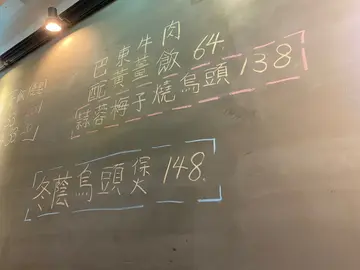 巴東牛肉
配黃薑飯 64.
蒜蓉梅子燒烏頭 138
冬蔭烏頭煲 148.